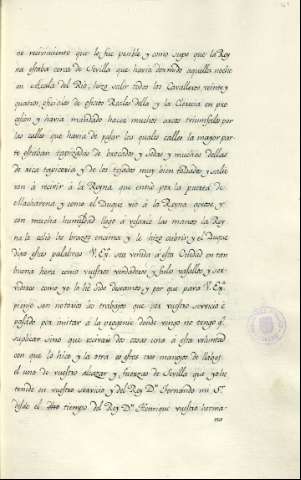 ne recivimiento que le fue posible y como supo que la Rey
na estaba cerca de Sevilla que havia dormido aquella noche
en Alcala del Rio, hizo salir todos los Cavalleros, veinte y
quatros, oficiales de ofizios Reales della y la Clerecia en pro
cesion y havia mandado hacer muchos arcos triumfales por
las calles que havia de pasar las quales calles la mayor par
te estaban tapizadas de brocados y sedas y muchas dellas
de rica tapiceria y de los tejados muy bien toldados, y salie
ron á recivir á la Reyna que entró por la puerta de
Macharena y como el Duque vio á la Reyna apeose, y
con mucha humildad llegó á besarle las manos la Rey
na le echó los brazos encima y le hizo cubrir, y el Duque
dijo estas palabras V. Exª. sea venida á esta Ciudad en tan
buena hora como vuestros verdaderos, y fieles vasallos y ser
vidores como yo lo hé sido deseamos, y por que para V. Exª.
pienso son notorios los trabajos que por vuestro servicio é
pasado por quitar á la presente donde vengo no tengo qᵉ.
suplicar sino que reciva dos cosas una á esta voluntad
con que lo hice y la otra es estos tres manojos de llabes
el uno de vuestro alcazar y fuerzas de Sevilla que yo hé
tenido en vuestro servicio y del Rey Dⁿ. Fernando mi Sʳ.
desde el tiempo del Rey Dⁿ. Henrique vuestro herma
no